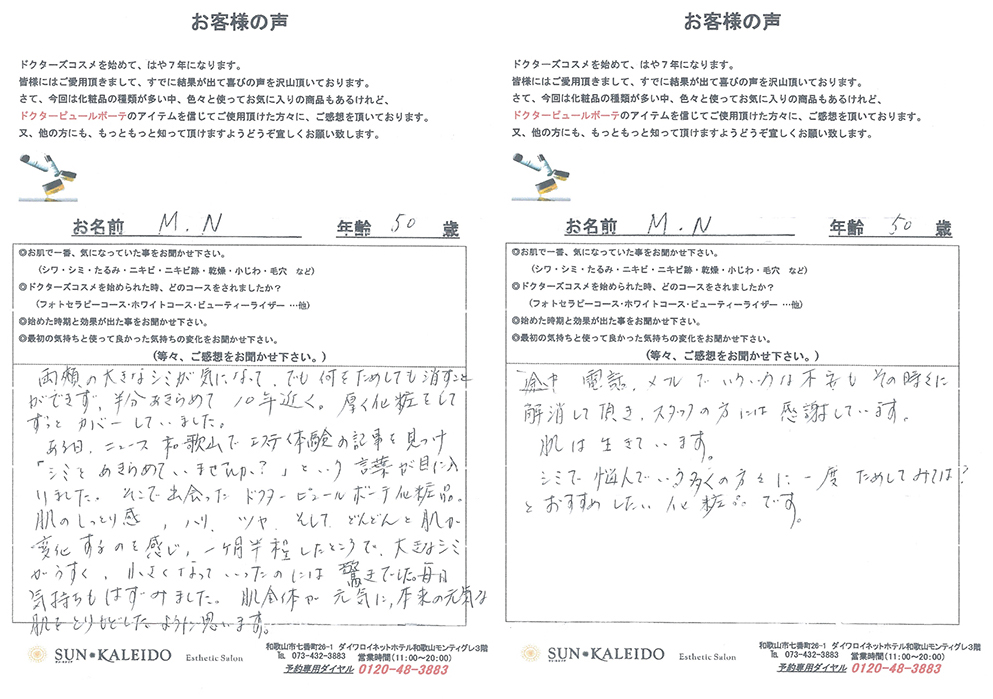 お客様の声
ドクターズコスメを始めて、はや7年になります。
皆様にはご愛用頂きまして、すでに結果が出て喜びの声を沢山頂いております。
さて、今回は化粧品の種類が多い中、色々と使ってお気に入りの商品もあるけれど、
ドクターピュールボーテのアイテムを信じてご使用頂けた方々に、ご感想を頂いております。
又、他の方にも、もっともっと知って頂けますようどうぞ宜しくお願い致します。
お名前 M.N 年齢 50 歳
◎お肌で一番、気になっていた事をお聞かせ下さい。
(シワ・シミ・たるみ・ニキビ・ニキビ跡・乾燥・小じわ・毛穴 など)
◎ドクターズコスメを始められた時、どのコースをされましたか?
(フォトセラピーコース・ホワイトコース・ビューティーライザー …他)
◎始めた時期と効果が出た事をお聞かせ下さい。
◎最初の気持ちと使って良かった気持ちの変化をお聞かせ下さい。
(等々、ご感想をお聞かせ下さい。)
両頬の大きなシミが気になって、でも何をためしても消すこと
ができず、半分あきらめて 10年近く。厚く化粧をして
ずっと カバーしていました。
ある日、ニュース和歌山でエステ体験の記事を見つけ
「シミをあきらめていませんか?」という言葉が目に入
りました。そこで出会った ドクターピュールボーテ化粧品。
肌のしっとり感、ハリ、ツヤ、そして どんどんと肌が
変化するのを感じ、一ヶ月半程したところで、大きなシミ
がうすく、小さくなっていったのには 驚きでした。毎日
気持ちもはずみました。肌全体が 元気に、本来の元気な
肌をとりもどしたように思います。
SUN KALEIDO Esthetic Salon
和歌山市七番町26-1 ダイワロイネットホテル和歌山モンティグレ3階
℡ 073-432-3883 営業時間(11:00~20:00)
予約専用ダイヤル 0120-48-3883
お客様の声
ドクターズコスメを始めて、はや7年になります。
皆様にはご愛用頂きまして、すでに結果が出て喜びの声を沢山頂いております。
さて、今回は化粧品の種類が多い中、色々と使ってお気に入りの商品もあるけれど、
ドクターピュールボーテのアイテムを信じてご使用頂けた方々に、ご感想を頂いております。
又、他の方にも、もっともっと知って頂けますようどうぞ宜しくお願い致します。
お名前 M.N 年齢 50 歳
◎お肌で一番、気になっていた事をお聞かせ下さい。
(シワ・シミ・たるみ・ニキビ・ニキビ跡・乾燥・小じわ・毛穴 など)
◎ドクターズコスメを始められた時、どのコースをされましたか?
(フォトセラピーコース・ホワイトコース・ビューティーライザー …他)
◎始めた時期と効果が出た事をお聞かせ下さい。
◎最初の気持ちと使って良かった気持ちの変化をお聞かせ下さい。
(等々、ご感想をお聞かせ下さい。)
途中 電話、メールで いろいろな不安も その時々に
解消して頂き、スタッフの方には 感謝しています。
肌は生きています。
シミで悩んでいる多くの方々に 一度 ためしてみては?
とおすすめしたい 化粧品です。
SUN KALEIDO Esthetic Salon
和歌山市七番町26-1 ダイワロイネットホテル和歌山モンティグレ3階
℡ 073-432-3883 営業時間(11:00~20:00)
予約専用ダイヤル 0120-48-3883